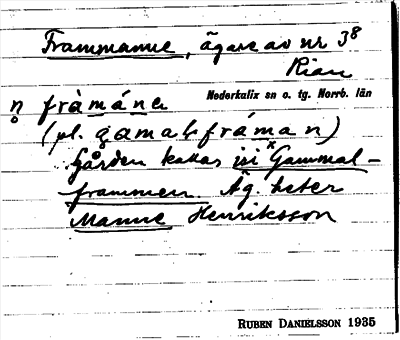 Frammanne, ägare av nr 3⁸
Rian
Nederkalix sn o. tg. Norrb. län
n̥ fràmána
(pl. gamalframan)
Gården kallas Gammal-
frammen. Äg. heter
Manne Henriksson
RUBEN DANIELSSON 1935